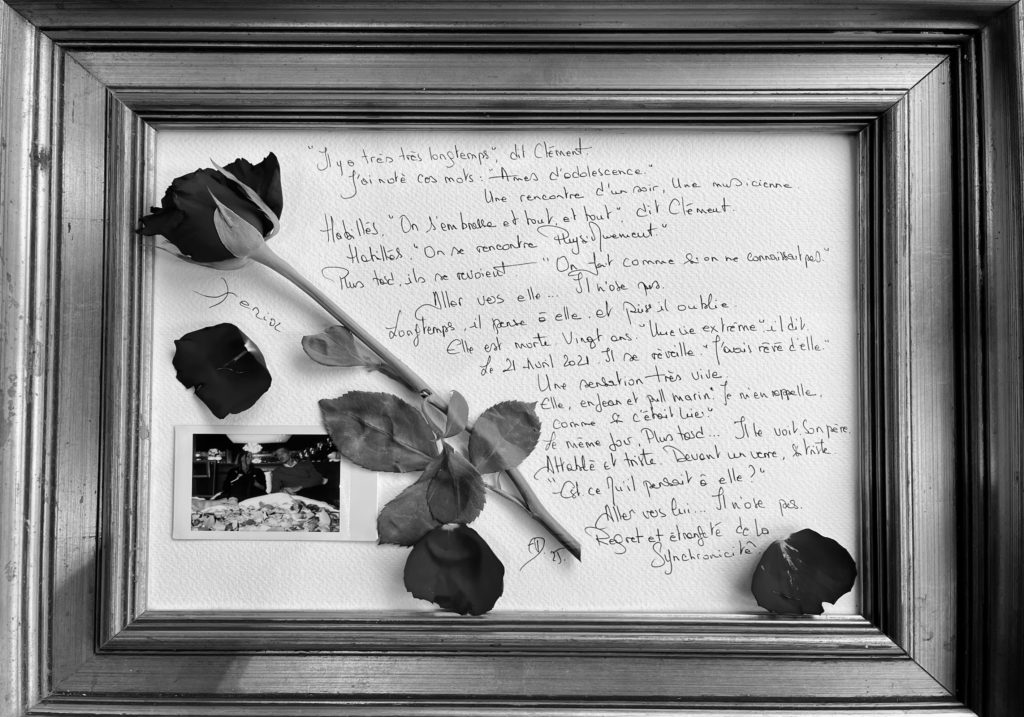 "Il y a très très longtemps", dit Clément.
J'ai noté ces mots : "Ames d'adolescence."
Une rencontre d'un soir, Une musicienne.
Habillés, "On s'embrasse et tout, et tout", dit Clément.
Habillés, "On se rencontre Physiquement."
Plus tard, ils se revoient — "On fait comme si on ne connaissait pas."
Aller vers elle... Il n'ose pas.
Longtemps, il pense à elle. et puis il oublie.
Elle est morte. Vingt ans. "Une vie extrême", il dit.
Le 21 Avril 2021. Il se réveille. "J'avais rêvé d'elle."
Une sensation très vive
Elle, en jean et pull marin. "Je m'en rappelle,
comme si c'était hier."
Le même jour, Plus tard... Il le voit. Son père.
Attablé et triste. Devant un verre, si triste
"Est-ce qu'il pensait à elle ?"
Aller vers lui... Il n'ose pas.
Regret et étrangeté de la
Synchronicité
AD. 25.